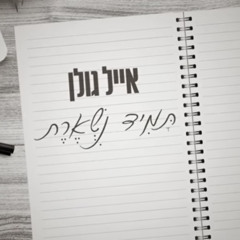 אייל גולן
תָּמִיד נִשְׁאֶרֶת